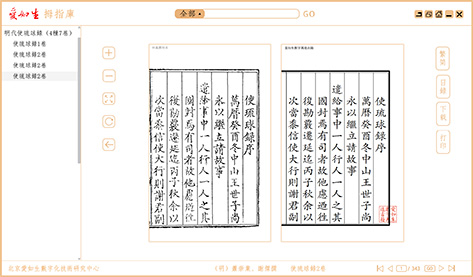 愛如生 拇指庫
全部
GO
明代使琉球錄（4種7卷）
使琉球錄1卷
使琉球錄1卷
使琉球錄2卷
使琉球錄2卷
使琉球錄序
萬曆癸酉冬中山王世子尚
永以繼立請故事
遣給事中一人行人一人之其
國封焉有司者故他處過往
後勘覈遷延迄丙子秋余以
次當奉信使大行則謝君副
使琉球錄序
萬曆癸酉冬中山王世子尚
永以繼立請故事
遣給事中一人行人一人之其
國封焉有司者故他處過往
後勘覈遷延迄丙子秋余以
次當奉信使大行則謝君副
繁简
目錄
下載
打印
北京愛如生數字化技術研究中心
使琉球錄2卷
1 / 343 GO